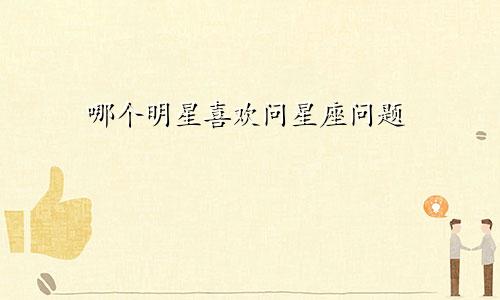 哪个明星喜欢问星座问题